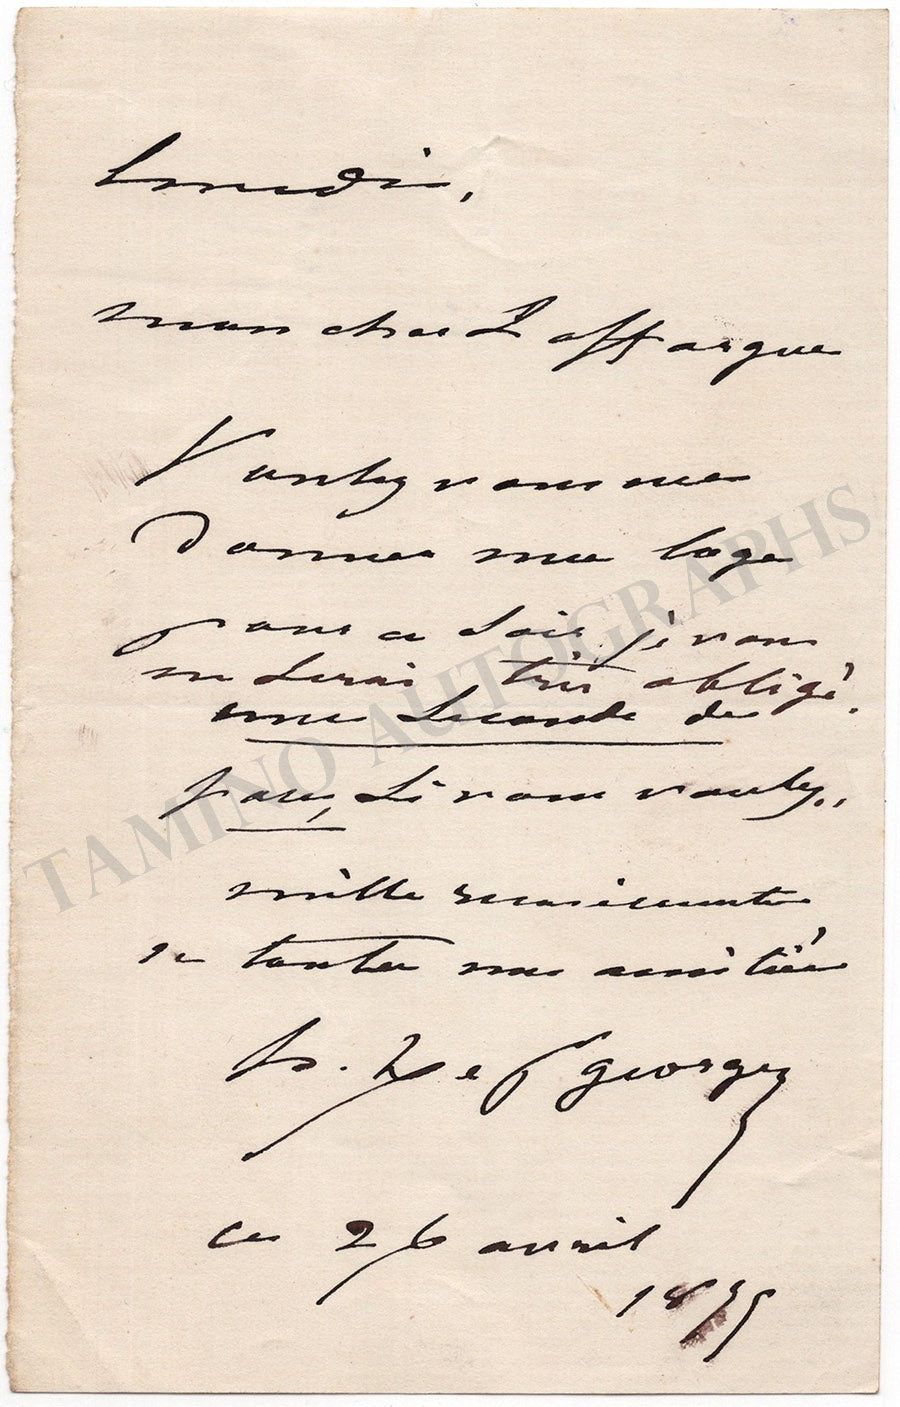 Lundi,
mon cher Laffargue
Voulez vous me
donner une loge
pour ce soir, je vous
en serai très obligé.
une seconde de
face, si vous voulez,,
mille remerciements
et toutes mes amitiés
h. de St georges
ce 26 avril
1875
TAMINO AUTOGRAPHS